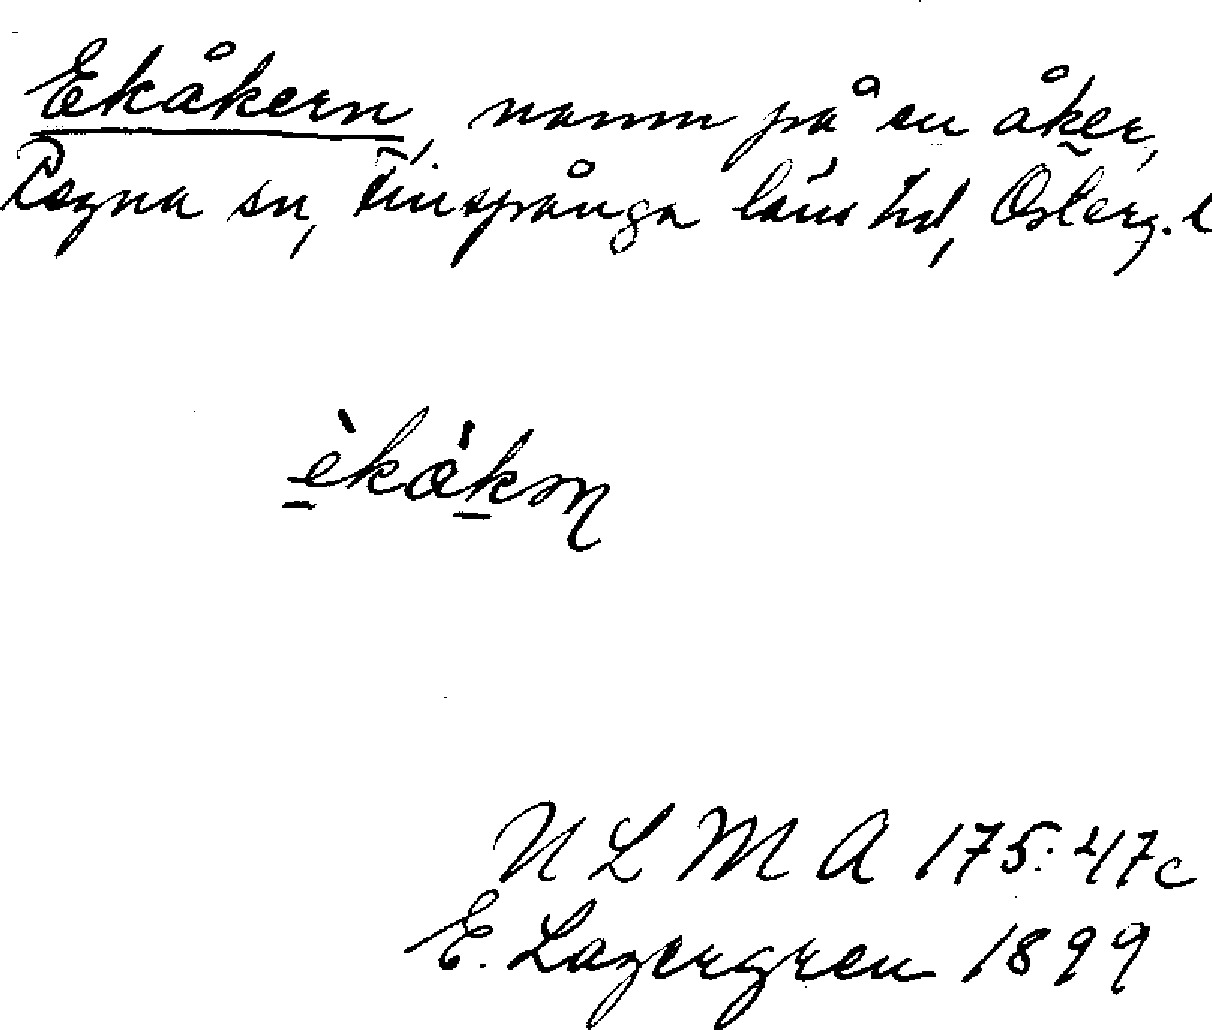 Ekåkern, namn på en åker,
Regna sn, Finspånga läns hd, Österg. l
èkåkɘn
N L M A 175:47c
E. Lagergren 1899